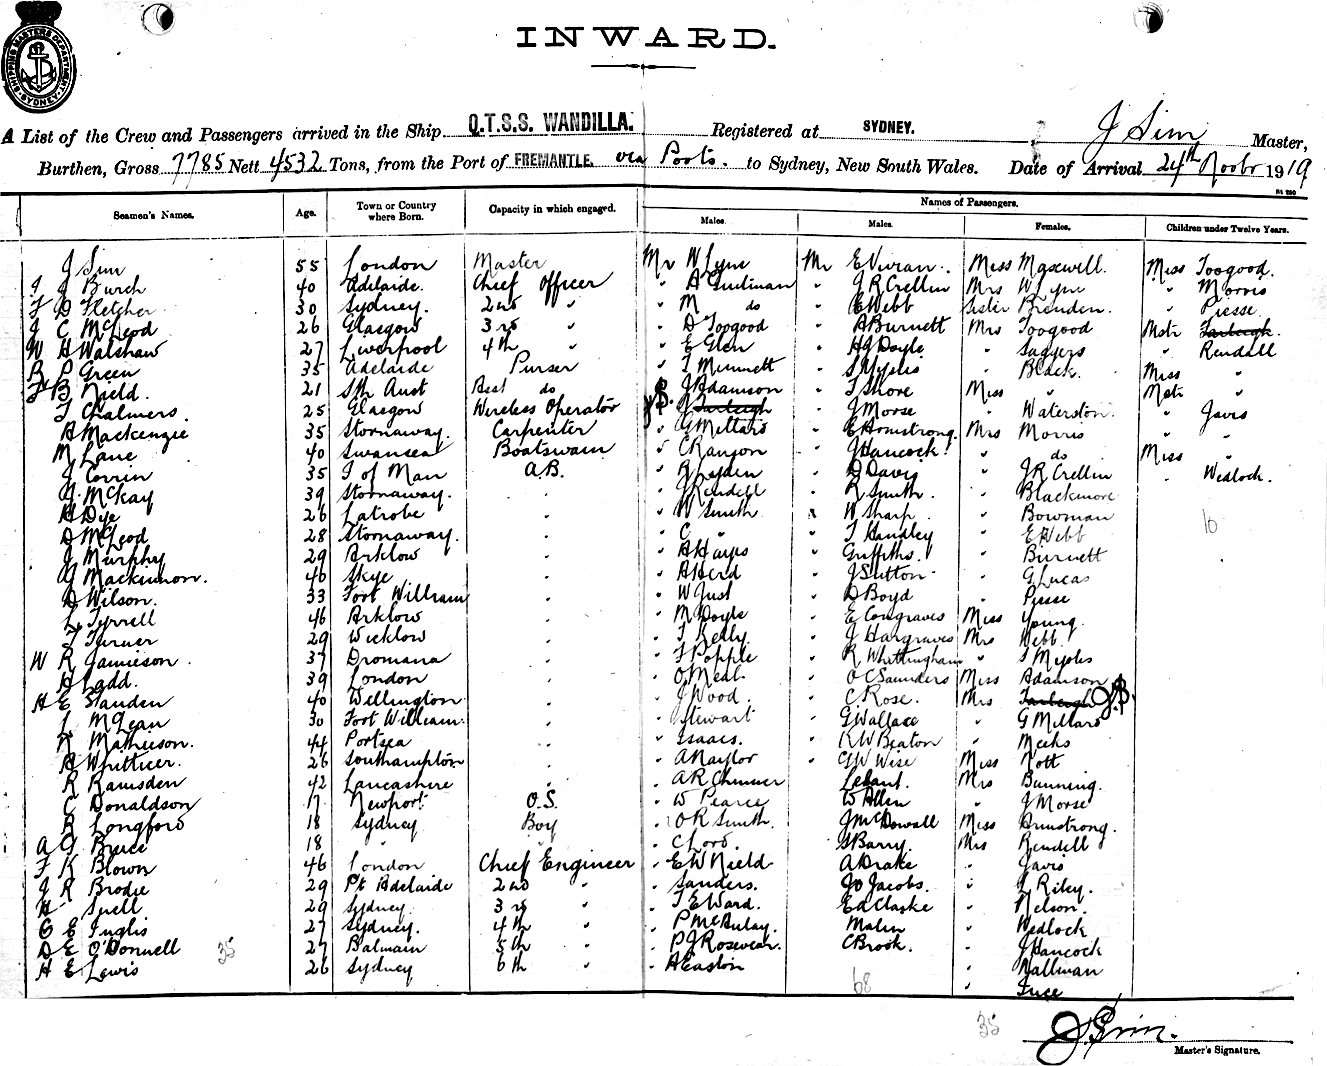 SHIPPING MASTERS DEPARTMENT SYDNEY
INWARD.
A List of the Crew and Passengers arrived in the Ship Q.T.S.S. WANDILLA. Registered at SYDNEY. J Sim Master,
Burthen, Gross 7785 Nett 4532 Tons, from the Port of FREMANTLE. via Ports. to Sydney, New South Wales. Date of Arrival 24th Novbr 1919
Seamen's Names. Age. Town or Country where Born. Capacity in which engaged. Names of Passengers.
Males. Males. Females. Children under Twelve Years.
J Sim 55 London Master Mr W Lyne Mr E Vivian. Miss Maxwell. Miss Toogood.
J J Burch 40 Adelaide. Chief Officer " A Suliman " J R Crellin Mrs W Lyne " Morris
F D Fletcher 30 Sydney. 2nd " " M do " E Webb Sister Brenden. " Piesse.
J C McLeod 26 Glasgow 3rd " " D Toogood " A Burnett Mrs Toogood Mstr Farleigh.
W H Walshaw 27 Liverpool 4th " " E Glen " H J Doyle " Saggers " Rendall
B P Green 35 Adelaide Purser " T Munnett " S Myles " Black. Miss "
F B Nield. 21 Sth Aust Asst do " J Adamson " T Shore Miss " Mstr "
T Chalmers. 25 Glasgow Wireless Operator J.S. J Farleigh " J Morse " Waterston. " Javis
A Mackenzie 35 Stornaway. Carpenter " G Millars " E Armstrong. Mrs Morris " "
M Lane 40 Swansea Boatswain " C Ranson " J Hancock. " do Miss "
J Corrin 35 I of Man A.B. " R Leyden " D Davis " J R Crellin " Wedlock.
G McKay 39 Stornaway. " " J Rendell " R Smith. " Blackmore
H Dye 26 Latrobe " " W Smith " W Sharp. " Bowman 10
D McLeod 28 Stornaway. " " C " " T Handley " E Webb
J Murphy 29 Arklow " " A Hayes " Griffiths. " Burnett
J Mackinnon. 46 Skye " " A Herd " J Sutton " G Lucas
D Wilson. 33 Fort William " " W Just " D Boyd " Piesse
L Tyrrell 46 Arklow " " M Doyle " E Congraves Miss Young.
T Turner 29 Wicklow " " T Kelly. " J Hargraves Mrs Webb
W R Jamieson. 37 Dromana " " F Popple " R Whittingham " S Myles
A Ladd. 39 London " " O Meal. " O C Saunders Miss Adamson
H E Standen 40 Wellington. " " J Wood. " C Rose. Mrs Farleigh J.S.
L McLean 30 Fort William. " " Stewart " G Wallace " G Millars
K Mathieson. 44 Portsea " " Isaacs. " R W Beaton " Meeks
A Whitticer. 26 Southampton " " A Naylor " G W Wise Miss Nott
R Ramsden 42 Lancashire " " A R Skinner Mrs Bunning.
C Donaldson 17 Newport. O.S. " W Pearce W Allen " J Morse
R Longford 18 Sydney Boy " O R Smith. J McDowall Miss Armstrong.
A G Bruce 18 " " " C Lord. S Barry. Mrs Rendell
F K Blown 46 London Chief Engineer " E W Nield A Drake " Javis
J R Brodie 29 Pt Adelaide 2nd " " Sanders. Jo Jacobs. " L Riley.
H Snell 29 Sydney. 3rd " " T E Ward. Ed Clarke " Nelson.
C E Inglis 27 Sydney. 4th " " P McAulay. Malin " Wedlock
D E O'Donnell 35 27 Balmain 5th " " P J Rosevear. C Brook. " J Hancock
H E Lewis 26 Sydney 6th " " A Easton " Hallman
68 " Fuce
35 J. Sim.
Master's Signature.